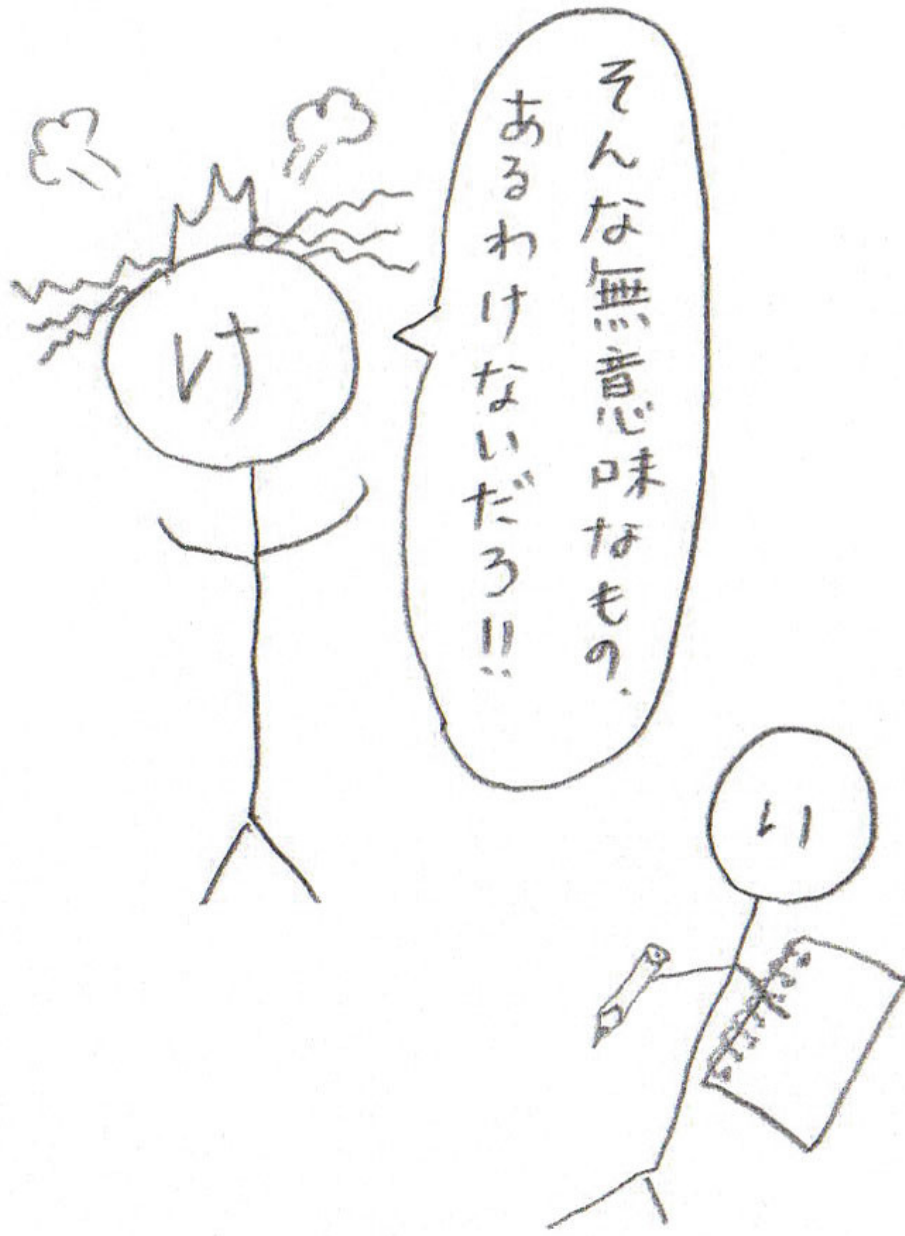 そんな無意味なもの、
あるわけないだろ!!
け
い